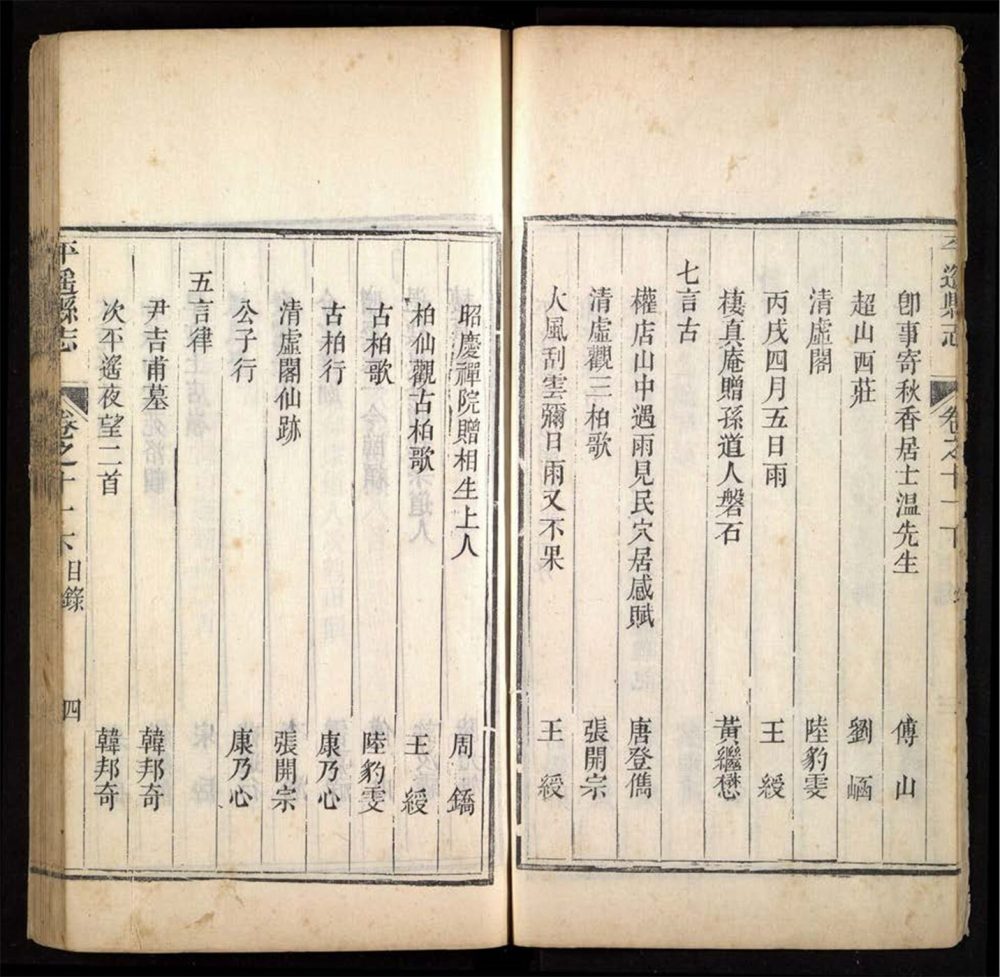 平遙縣志 卷之十一下
卽事寄秋香居士温先生 傅山
超山西莊 劉𡺚
清虛閣 陸豹雯
丙戌四月五日雨 王綬
棲真庵贈孫道人磐石 黃繼懋
七言古
權店山中遇雨見民穴居感賦 唐登儁
清虛觀三柏歌 張開宗
大風刮雲彌日雨又不果 王綬
昭慶禪院贈相生上人 周鐈
柏仙觀古柏歌 王綬
古柏歌 陸豹雯
古柏行 康乃心
清虛閣仙跡 張開宗
公子行 康乃心
五言律
尹吉甫墓 韓邦奇
次平遙夜望二首 韓邦奇
平遙縣志 卷之十一下 目錄 四